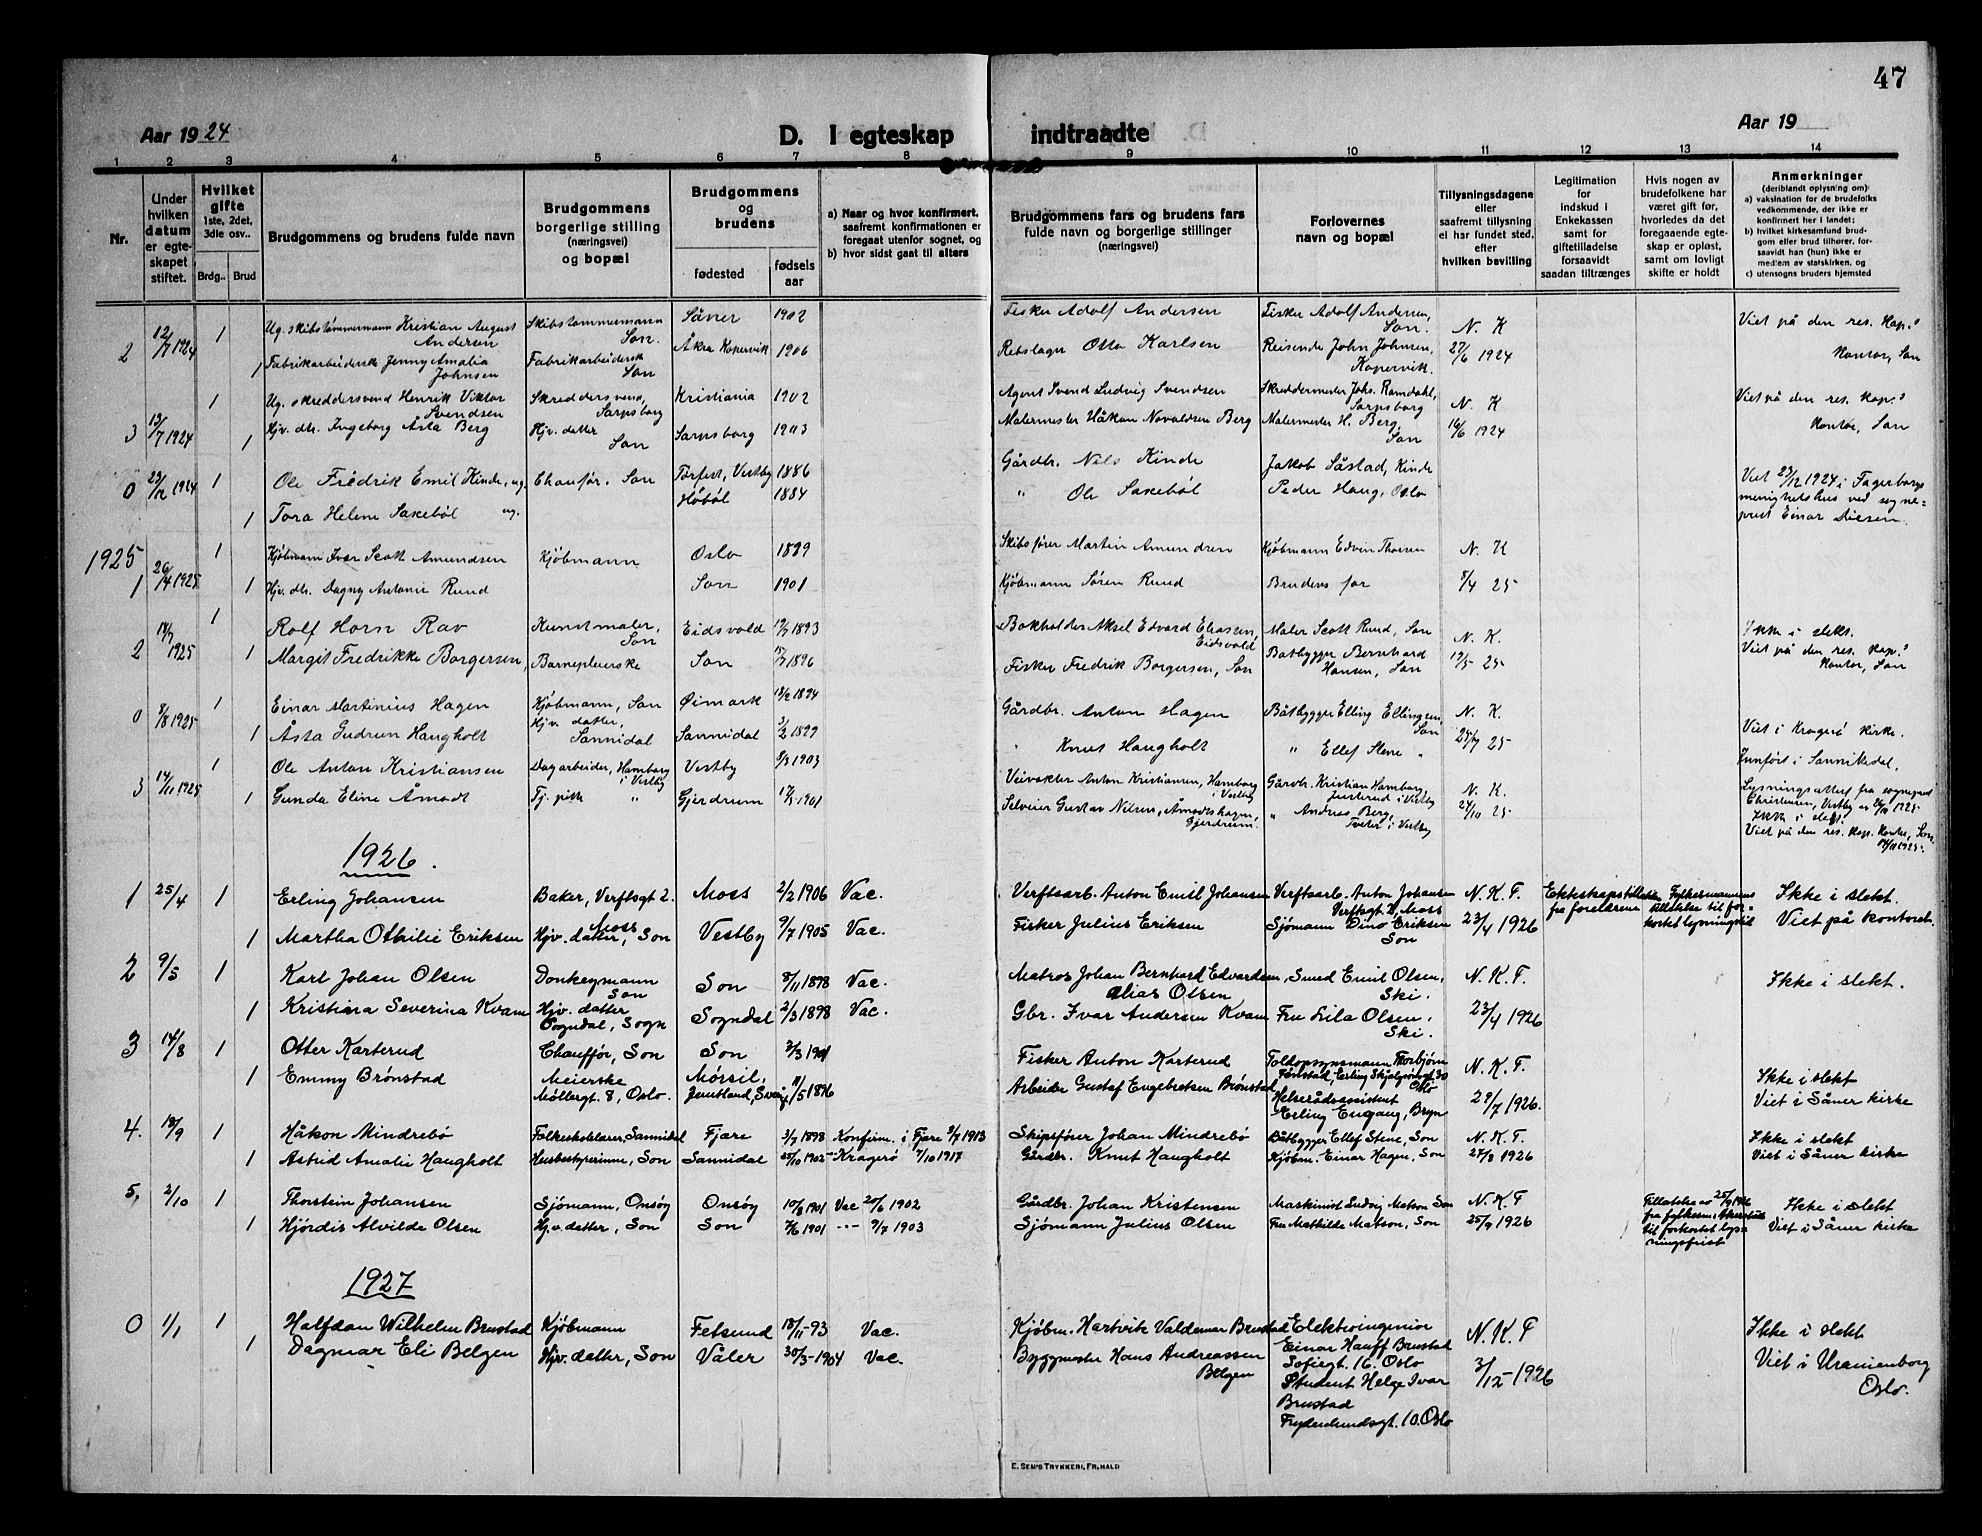 47
Aar 1924
D. I egteskap indtraadte
Aar 19
1 2 3 4 5 6 7 8 9 10 11 12 13 14
Nr.
Under hvilken datum er egteskapet stiftet.
Hvilket gifte
1ste, 2det, 3die osv..
Brdg.. Brud
Brudgommens og brudens fulde navn
Brudgommens borgerlige stilling (næringsvei) og bopæl
Brudgommens og brudens
fødested
fødsels aar
a) Naar og hvor konfirmert, saafremt konfirmationen er foregaat utenfor sognet, og
b) hvor sidst gaat til alters
Brudgommens fars og brudens fars fulde navn og borgerlige stillinger (næringsvei)
Forlovernes navn og bopæl
Tillysningsdagene eller saafremt tillysning ei har fundet sted, efter hvilken bevilling
Legitimation for indskud i Enkekassen samt for giftetilladelse forsaavidt saadan tiltrænges
Hvis nogen av brudefolkene har været gift før, hvorledes da det foregaaende egteskap er opløst, samt om lovligt skifte er holdt
Anmerkninger
(deriblandt oplysning om)
a) vaksination for de brudefolks vedkommende, der ikke er konfirmert her i landet;
b) hvilket kirkesamfund brudgom eller brud tilhører, forsaavidt han (hun) ikke er medlem av statskirken, og
c) utensogns bruders hjemsted
2 12/7 1924 1 Ug. skibstømmermann Kristian August Andersen Skibstømmermann Son. Såner 1902 Fisker Adolf Andersen Fisker Adolf Andersen, Son. N. K Viet på den res. kap.s
1 Fabrikarbeiderek Jenny Amalia Johnsen Fabrikarbeidersk Son Åkra Kopervik 1906 Rebslager Otto Karlsen Reisende John Johnsen, Kopervik. 27/6 1924 kontor, Son
3 13/7 1924 1 Ug. skreddersvend Henrik Viktor Svendsen Skreddersvend, Sarpsborg Kristiania 1902 Agent Svend Ludvig Svendsen Skreddermester Johs. Ramdahl, Sarpsborg N. K Viet på den res. kap.s
1 Hjv. dtr. Ingeborg Åsta Berg Hjv. datter Son Sarpsborg 1903 Malermester Håkon Novaldsen Berg Malermester H. Berg, Son 16/6 1924 Kontor, Son
0 23/12 1924 1 Ole Fredrik Emil Kinde, ug. Chaufør. Son Vestby 1886 Gårdbr. Nils Kinde Jakob Såstad, Kinde Viet 23/12 1924 i Fagerborgs menighetshus ved sogneprest Einar Diesen.
1 Tora Helene Sakebøl ug. Høbøl 1884 " Ole Sakebøl Peder Haug, Oslo
1925
1 26/4 1925 1 Kjøbmann Ivar Scott Amundsen Kjøbmann Oslo 1899 Skibsfører Martin Amundsen Kjøbmann Edvin Thoresen N. K
1 Hjv. dtr. Dagny Antonie Rund Son 1901 Kjøbmann Søren Rund Brudens far 8/4 25
2 1925 1 Rolf Horn Rav Kunstmaler, Son Eidsvold 1893 Bokholder Aksel Edvard Eliassen, Eidsvold Maler Scott Rund, Son N. K. Ikke i slekt.
1 Margit Fredrikke Borgersen, Barnepleierske Son 1896 Fisker Fredrik Borgersen, Son Båtbygger Bernhard Hansen, Son 19/5 25 Viet på den res. kap.s kontor, Son
0 8/8 1925 1 Einar Martinius Hagen Kjøbmann, Son Øimark 18/2 1894 Gårdbr. Anton Hagen Båtbygger Elling Ellingsen, Son N. K. Viet i Kragerø Kirke.
1 Åsta Gudrun Haugholt Hjv. datter, Sannidal Sannidal 3/2 1899 " Knut Haugholt " Ellef Stene " 25/7 25
3 14/11 1925 1 Ole Anton Kristiansen Dagarbeider, Hamborg i Vestby Vestby 9/3 1903 Veivokter Anton Kristiansen, Hamborg i Vestby Gårdbr. Kristian Hamborg, i Vestby N. K. Innført i Sannikedal.
1 Gunda Eline Åmodt Tj. pike " Gjerdrum 1901 Selveier Gustav Nilsen, Åmodshagen, Gjerdrum. " Andreas Berg, Tveter i Vestby 24/10 25 Lysningsattest fra sogneprest Christensen, Vestby av 1925
Ikke i slekt.
Viet på den res. kap. kontor, Son 14/11 1925.
1926.
1 25/4 1 Erling Johansen Baker, Verftsgt 2. Moss Moss 2/2 1906 Vac. Verftsarb. Anton Emil Johansen Verftsarb. Anton Johansen Verftsgt 2, Moss N. K. F Ekteskapstillatelse fra foreldrene Fylkesmannens tillatelse til forkortet lysningstid Ikke i slekt.
1 Martha Othilie Eriksen Hjv. datter, Son Vestby 9/7 1905 Vac. Fisker Julius Eriksen Sjømann Dino Eriksen Son 23/4 1926 Viet på kontoret.
2 9/5 1 Karl Johan Olsen Donkeymann Son Son 8/11 1898 Vac. Matros Johan Bernhard Edvardsen, alias Olsen Smed Emil Olsen, Ski. N. K. F. Ikke i slekt.
1 Kristina Severina Kvam Hjv. datter Sogndal, Sogn Sogndal 2/3 1898 Vac. Gbr. Ivar Andersen Kvam Fru Lila Olsen, Ski. 23/4 1926
3 14/8 1 Otter Karterud Chauffør, Son Son 2/3 1901 Fisker Anton Karterud Toldopsynsmann Thorbjørn Erling Skjalgsonsgt 30 Oslo N. K. F.
1 Emmy Brønstad Meierske Møllergt. 8, Oslo. Mörsil, Jemtland, Sverige 11/5 1896 Arbeider Gustaf Engebretsen Brønstad Helserådsassistent Erling Engang, Bryn 29/7 1926. Ikke i slekt Viet i Såner kirke
4. 18/9 1 Håkon Mindrebø Folkeskolelærer, Sannidal Fjære 3/7 1898 Konfirm. i Fjære 1913 Skipsfører Johan Mindrebø Båtbygger Ellef Stene, Son N. K. F. Ikke i slekt
1 Astrid Amalie Haugholt Husbestyrerinne, Son Sannidal 25/10 1902 — Kragerø 7/10 1917 Gårdbr. Knut Haugholt Kjøbm. Einar Hagen, Son 27/8 1926 Viet i Såner kirke
5, 2/10 1 Thorstein Johansen Sjømann, Onsøy Onsøy 10/8 1901 Vac 20/6 1902 Gårdbr. Johan Kristensen Maskinist Ludvig Matson Son N. K. F Tillatelse av 25/9 1926 fra fylkesm. i Akershus til forkortet lysningsfrist Ikke i slekt
1 Hjördis Alvilde Olsen Hjv. datter, Son Son 7/6 1901 -"- 9/7 1903 Sjömann Julius Olsen Fru Mathilde Matson, Son 25/9 1926 Viet i Såner kirke
1927
0 1/1 1 Halfdan Wilhelm Brustad Kjøbmann Fetsund 18/11-93 Vac. Kjøbm. Hartvik Valdemar Brustad Elektroingeniør Einar Hauff Brustad Sofiegt. 16. Oslo N. K. F Ikke i slekt
1 Dagmar Eli Belgen Hjv. datter, Son Våler 30/3-1904 Vac. Byggmester Hans Andreassen Belgen Student Helge Ivar Brustad Frydenlundsgt. 10. Oslo 3/12-1926 Viet i Uranienborg Oslo.
E. SEM'S TRYKKERI, FR.HALD